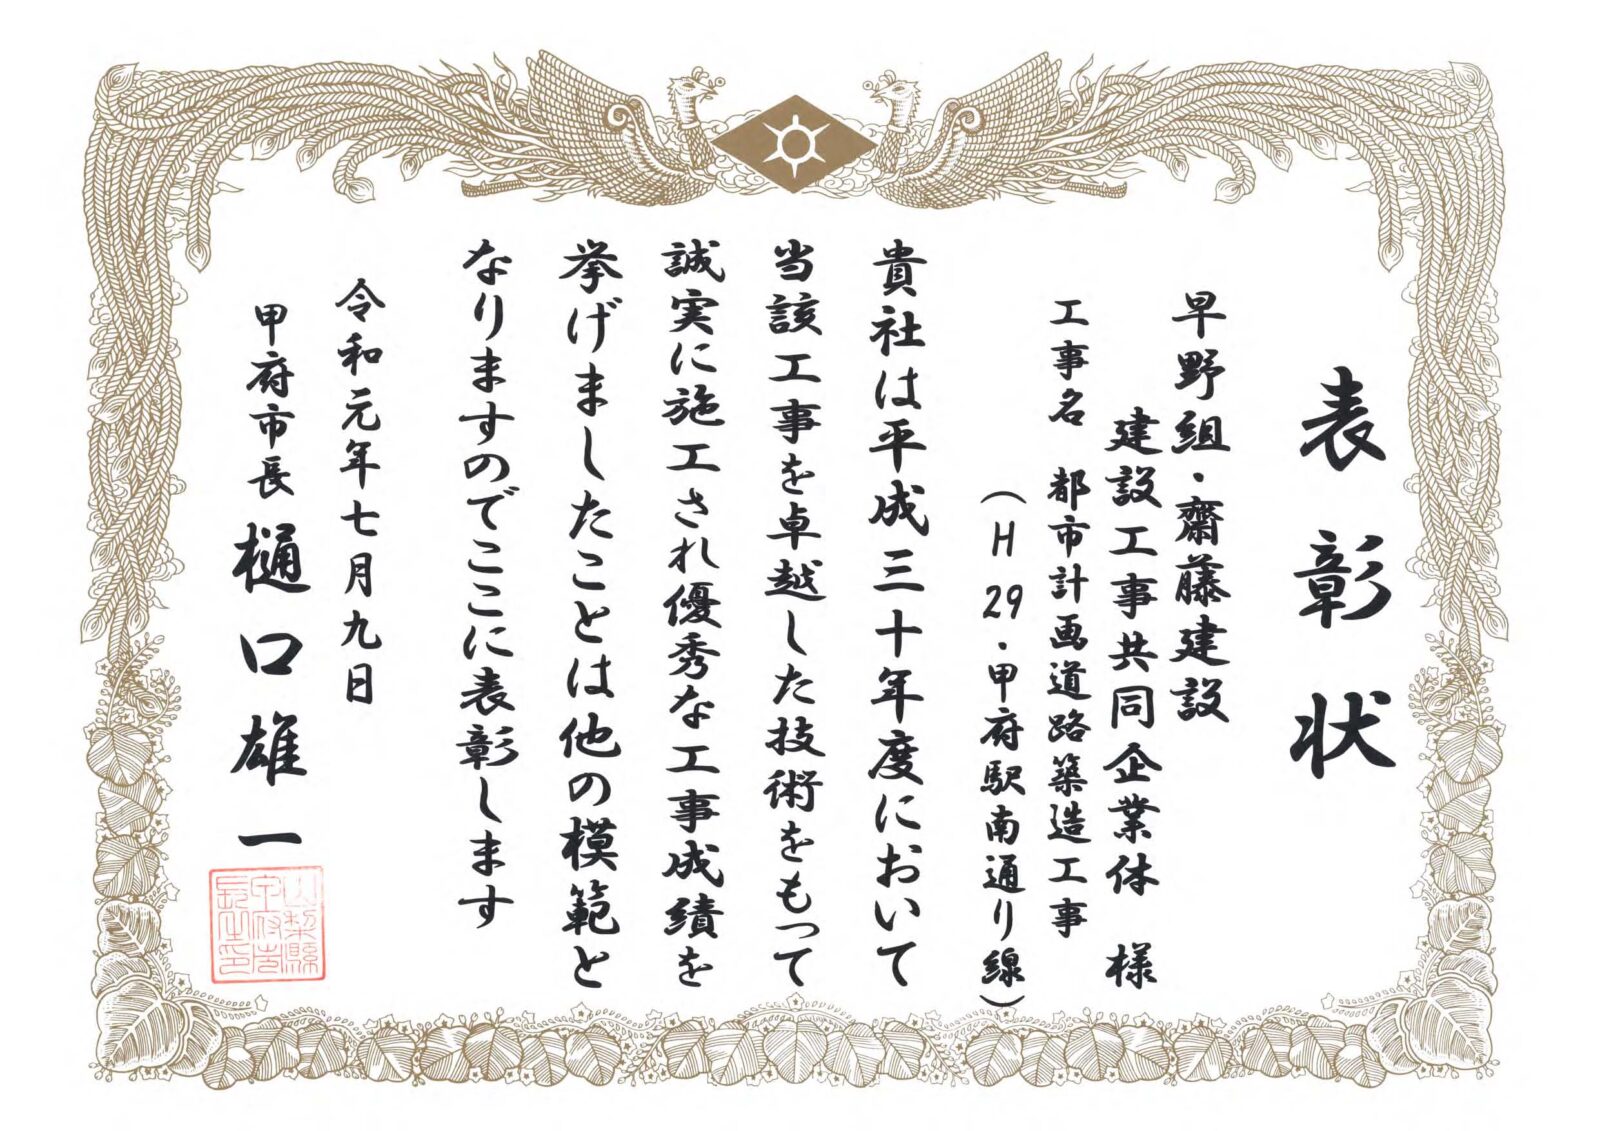 表彰状
早野組・齋藤建設
建設工事共同企業体 様
工事名 都市計画道路築造工事
（H29・甲府駅南通り線）
貴社は平成三十年度において
当該工事を卓越した技術をもって
誠実に施工され優秀な工事成績を
挙げましたことは他の模範と
なりますのでここに表彰します
令和元年七月九日
甲府市長 樋口雄一
山梨縣
甲府市
長之印